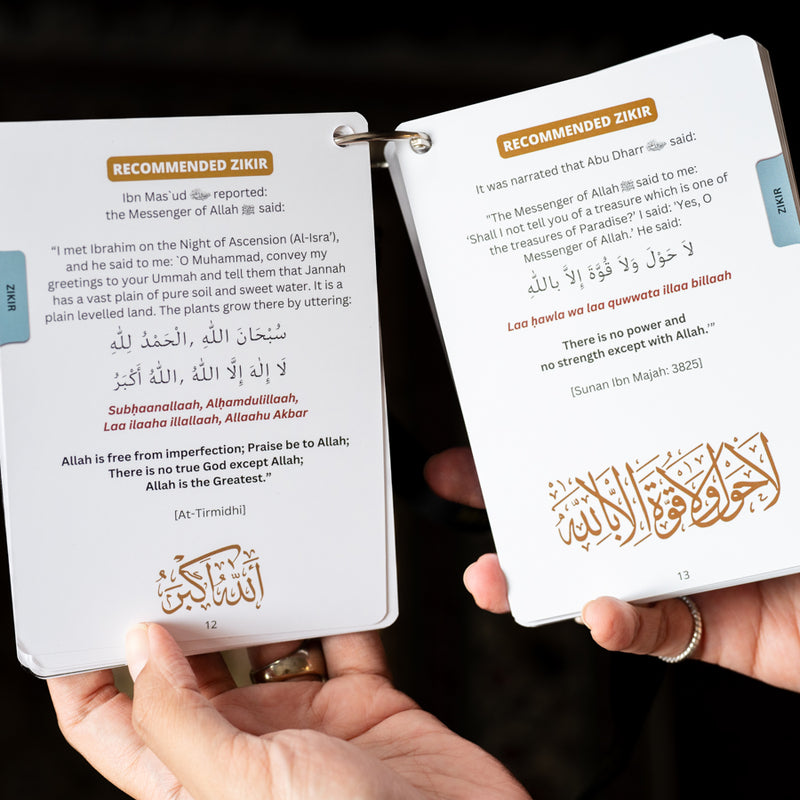 RECOMMENDED ZIKIR
Ibn Mas`ud reported:
the Messenger of Allah ﷺ said:
“I met Ibrahim on the Night of Ascension (Al-Isra’),
and he said to me: `O Muhammad, convey my
greetings to your Ummah and tell them that Jannah
has a vast plain of pure soil and sweet water. It is a
plain levelled land. The plants grow there by uttering:
سُبْحَانَ اللهِ ,الْحَمْدُ لِلّٰهِ
لَا إِلٰهَ إِلَّا اللهُ ,اللهُ أَكْبَرُ
Subḥaanallaah, Alḥamdulillaah,
Laa ilaaha illallaah, Allaahu Akbar
Allah is free from imperfection; Praise be to Allah;
There is no true God except Allah;
Allah is the Greatest.”
[At-Tirmidhi]
اَللّٰهُ اَكْبَرُ
12
ZIKIR
RECOMMENDED ZIKIR
It was narrated that Abu Dharr said:
"The Messenger of Allah ﷺ said to me:
‘Shall I not tell you of a treasure which is one of
the treasures of Paradise?’ I said: ‘Yes, O
Messenger of Allah.’ He said:
لاَ حَوْلَ وَلاَ قُوَّةَ إِلاَّ بِاللّٰهِ
Laa ḥawla wa laa quwwata illaa billaah
There is no power and
no strength except with Allah.’”
[Sunan Ibn Majah: 3825]
لا حول ولا قوة إلا بالله
13
ZIKIR